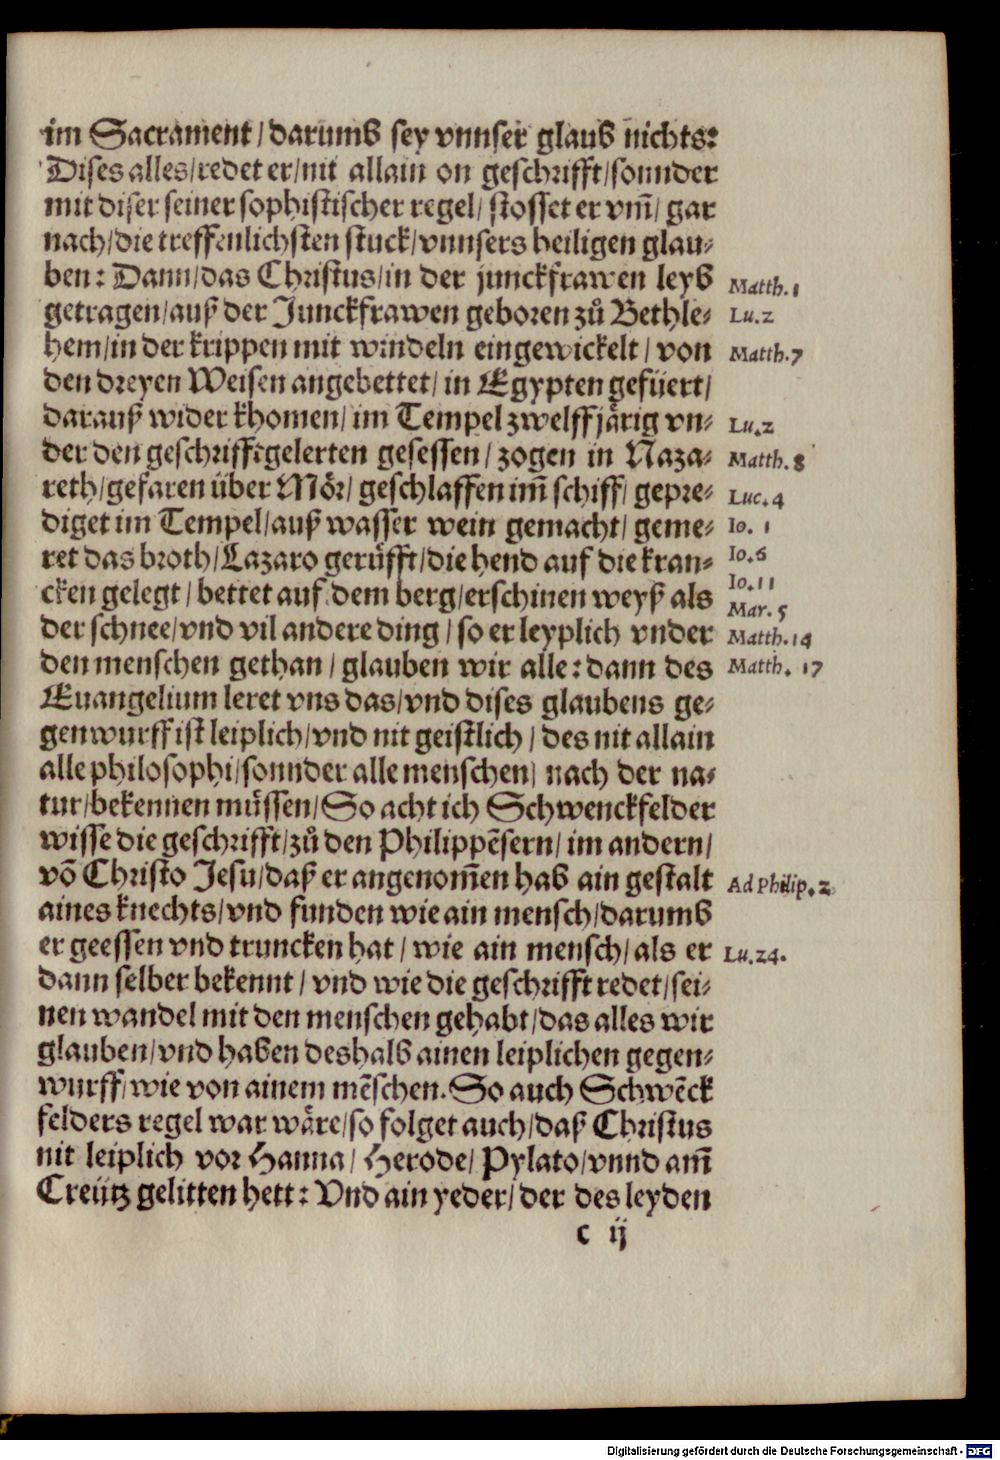 im Sacrament/darumb sey vnnser glaub nichts:
Dises alles/redet er/nit allain on geschrifft/sonnder
mit diser seiner sophistischer regel/ stosset er vm̄/ gar
nach/die treffenlichsten stuck/vnnsers heiligen glau-
ben: Dann/das Christus/in der junckfrawen leyb Matth.1
getragen/auß der Junckfrawen geboren zů Bethle- Lu.2
hem/in der krippen mit windeln eingewickelt/ von Matth.7
den dreyen Weisen angebettet/ in Egypten gefüert/
darauß wider khomen/ im Tempel zwelffjärig vn- Lu.2
der den geschrifftgelerten gesessen/ zogen in Naza- Matth.8
reth/gefaren über Mör/ geschlaffen im̄ schiff/ gepre- Luc.4
diget im Tempel/auß wasser wein gemacht/ geme- Io. 1
ret das broth/Lazaro gerüfft/die hend auf die kran- Io.6
Io.11
cken gelegt/ bettet auf dem berg/erschinen weyß als Mar.5
der schnee/vnd vil andere ding/ so er leyplich vnder Matth.14
den menschen gethan/ glauben wir alle: dann des Matth. 17
Euangelium leret vns das/vnd dises glaubens ge-
genwurff ist leiplich/vnd nit geistlich/ des nit allain
alle philosophi/sonnder alle menschen/ nach der na-
tur/bekennen müssen/So acht ich Schwenckfelder
wisse die geschrifft/zů den Philippēsern/ im andern/
vō Christo Jesu/daß er angenom̄en hab ain gestalt Ad Philip.2
aines knechts/vnd funden wie ain mensch/darumb
er geessen vnd truncken hat/ wie ain mensch/als er Lu.24.
dann selber bekennt/ vnd wie die geschrifft redet/sei-
nen wandel mit den menschen gehabt/das alles wir
glauben/vnd haben deshalb ainen leiplichen gegen-
wurff/wie von ainem mēschen. So auch Schwēck
felders regel war wäre/so folget auch/daß Christus
nit leiplich vor Hanna/ Herode/ Pylato/vnnd am̄
Creütz gelitten hett: Vnd ain yeder/ der des leyden
c ij
Digitalisierung gefördert durch die Deutsche Forschungsgemeinschaft - DFG